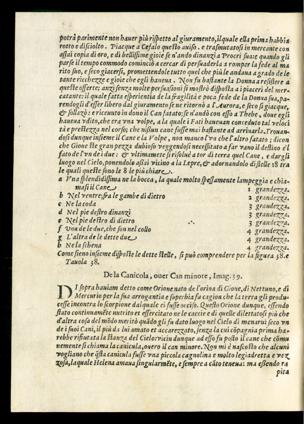 potrà parimente non hauer più rispetto al giuramento, il quale ella prima habbia
rotto e disciolto. Piacque a Cefalo questo auiso, e trasmutatosi in mercatante con
assai copia di oro, e di bellissime gioie se n'andò dinanzi a Procri sua; quando gli
parse il tempo commodo cominciò a cercar di persuaderla a romper la fede al ma
rito suo, e seco giacersi, promettendole tutto quel che più le andaua a grado de le
tante ricchezze e gioie che egli hauena. Non fu bastante la Donna a resistere a
queste offerte; anzi senza molte persuasioni si mostrò disposta a i piaceri del mer
catante: il qual fatto esperientia de la fragilità e poca fede de la Donna sua, pa-
rendogli d'esser libero dal giuramento se ne ritornò a l'Aurora, e seco si giacque,
e sollazzò: e riceuuto in dono il Can fatato, se n'andò con esso a Thebe, doue egli
haueua vdito, che era vna volpe, a la quale i Fati haueuan conceduto tal veloci
tà e prestezza nel corso, che nissun cane fosse mai bastante ad arriuarla. Trouan-
dosi dunque insieme il Cane e la Volpe, non manco l'vn che l'altro fatato; dicon
che Gioue stè gran pezza dubioso veggendosi necessitato a far vano il destino e'l
fato de l'vn di due: & vltimamente si risoluè a tor di terra quel Cane, e dargli
luogo nel Cielo, ponendolo assai vicino a la Lepre, & adornandolo di stelle 18 tra
le quali queste sono le 8 le più chiare.
a Vna splendidissima ne la bocca, la quale molto spessamente lampeggia e chia-
masi il Cane 1 grandezza.
b Nel ventre, fra le gambe di dietro 3 grandezza.
c Ne la coda 3 grandezza.
d Nel piè destro dinanzi 3 grandezza.
e Nel piè destro di dietro 3 grandezza.
f Vna de le due, che son nel collo 4 grandezza.
g L'altra de le dette due 4 grandezza.
h Ne la schena 4 grandezza.
Come sieno insieme disposte le dette stelle, si può comprendere per la figura 38. e
Tauola 38.
De la Canicola, ouer Can minore, Imag. 39.
DI sopra hauiam detto come Orione nato de l'orina di Gioue, di Nettuno, e di
Mercurio per la sua arrogantia e superbia fu cagion che la terra gli produ-
cesse incontro lo scorpione dal quale ei fusse vcciso. Questo Orione dunque, essendo
stato continuamēte nutrito et essercitato ne le caccie e di quelle dilettatosi più che
d'altra cosa del modo meritò quādo gli fu dato luogo nel Cielo di menarui seco vn
de i suoi Cani, il più da lui amato et accarezzato, senza la cui cōpagnia prima hab-
rebbe rifiutata la stanza del Cielo: vicin dunque ad esso fu posto il cane che cōmu
nemente si chiama la canicula, ouero il can minore. Non mi è nascosto che alcuni
vogliano che q̄sta canicula fusse vna piccola cagnolina e molto legiadretta e vez
zosa, la quale Helena amaua singularmēte, e sempre a cāto teneua: ma essendo ra
pita